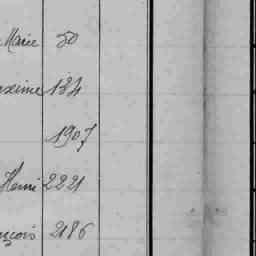 Marie 50
xime 134
1907
Henri 2221
nçois 2186